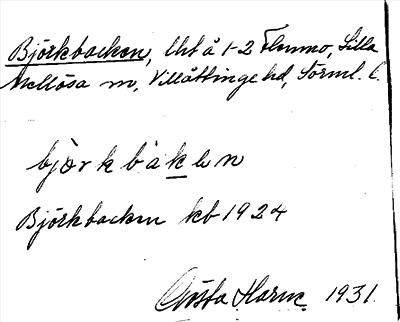 Björkbacken, lht å 1-2 Flemmo, Lilla
Mellösa sn, Villåttinge hd, Sörml. l.
björkbàken
Björkbacken kb 1924
Gösta Harne. 1931.